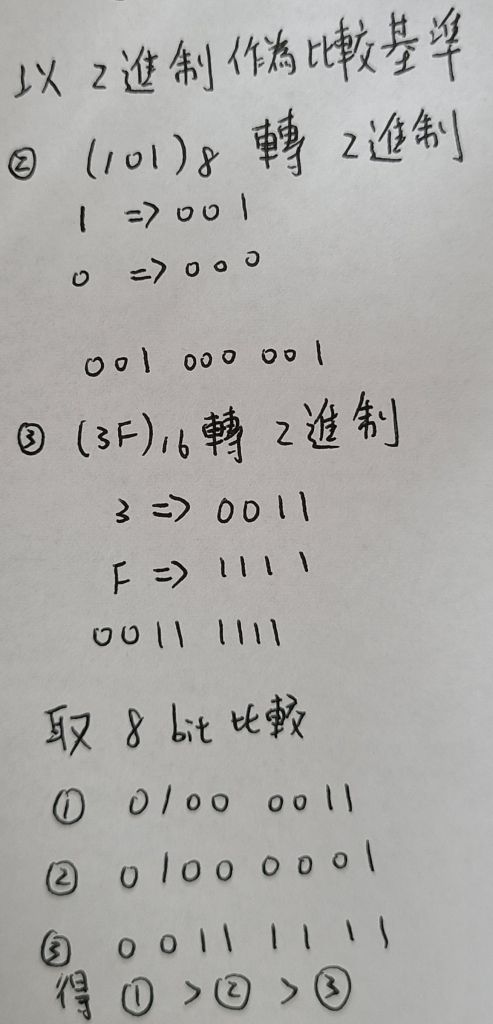 以 2 進制作為比較基準
② (101)8 轉 2 進制
1 => 001
0 => 000
001 000 001
③ (3F)16 轉 2 進制
3 => 0011
F => 1111
0011 1111
取 8 bit 比較
① 0100 0011
② 0100 0001
③ 0011 1111
得 ① > ② > ③